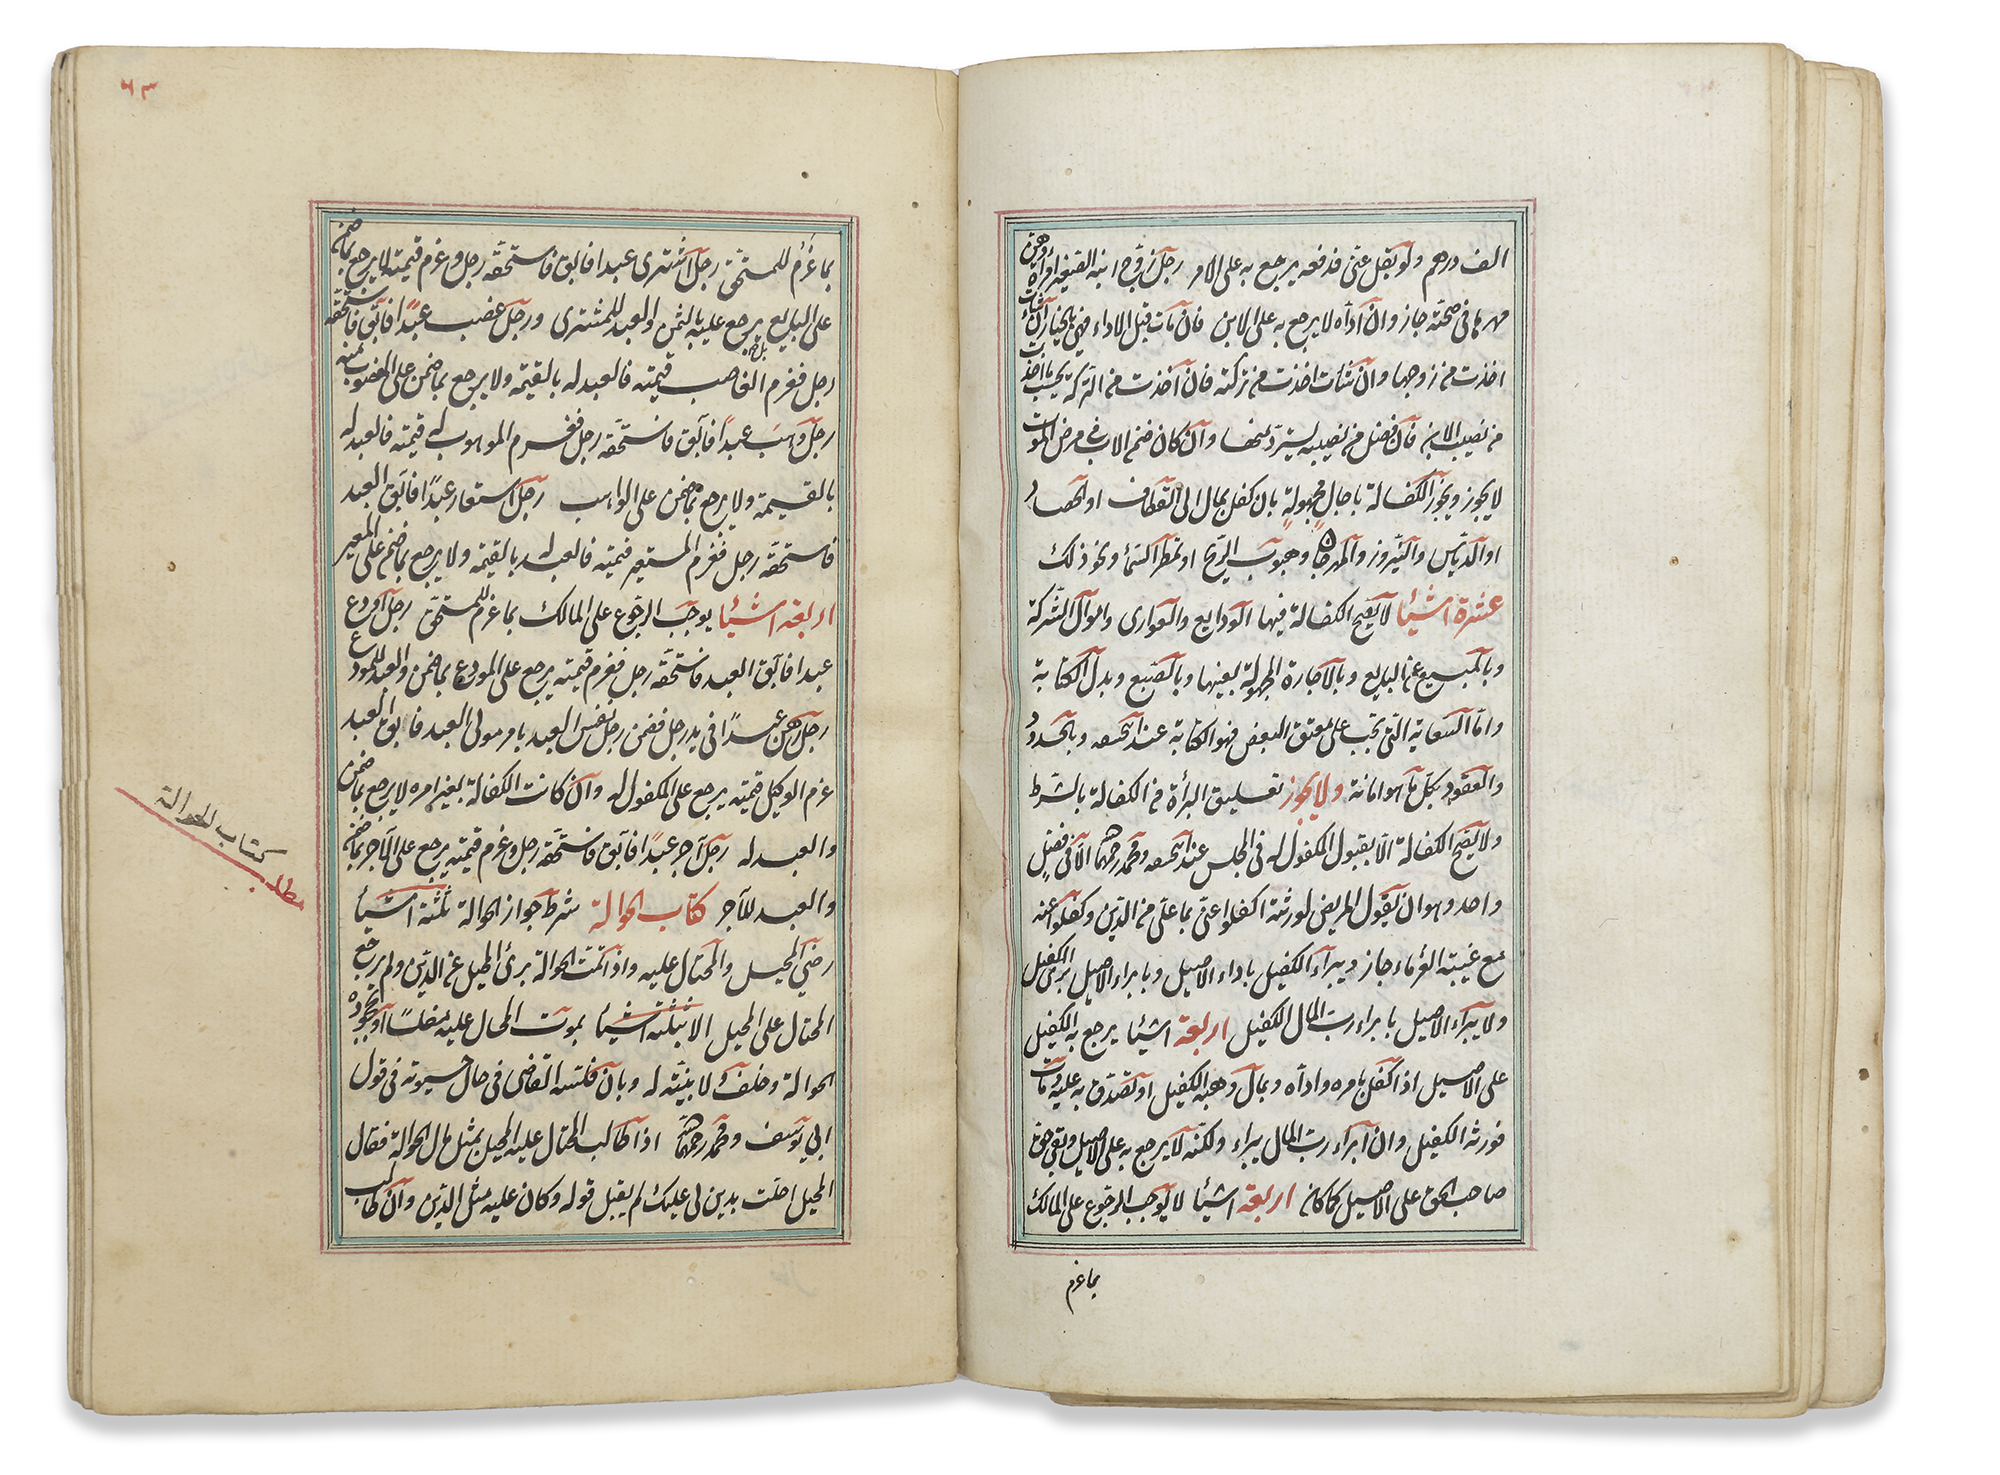 الف درهم ولو لم يقل عنى فدفعه يرجع به على الامر رجل زوج ابنه الصغير امرأة وضمن
مهرها فى صحته جاز وان اداه لا يرجع به على الابن فان مات قبل الاداء فهى بالخيار ان شاءت
اخذت من زوجها وان شأت اخذت من تركته فان اخذت من التركة يحسب ما اخذت
من نصيب الابن فان فضل من نصيبه يسترد منها وان كان ضمن الاب فى مرض الموت
لا يجوز ويجوز الكفالة باجال مجهولة بان كفل بمال الى القطاف او الحصاد
او الدياس والنيروز والمهرجان وهبوب الريح او تمطر السماء ونحو ذلك
عشرة اشيأ لا يصح الكفالة فيها الودايع والعوارى واموال الشركة
وبالمبيع عن البايع وبالاجارة المجهولة بعينها وبالصبع وبدل الكتابة
واما السعاية التى تجب على معتق البعض فهو الكتابة عند ابيحنيفه وبالحدود
والعقود بكل ما هو امانة ولا يجوز تعليق البرأة من الكفالة بالشرط
ولا يصح الكفالة الا بقبول المكفول له فى المجلس عند ابيحنيفه ومحمد رحمهما الله الا فى فصل
واحد وهو ان يقول المريض لورثته اكفلوا عنى بما على من الدين وكفلوا عنه
مع غيبة الغرماء جاز ويبرأ الكفيل باداء الاصيل وبابراء الاصيل برئ الكفيل
ولا يبرأ الاصيل بابراء رب المال الكفيل اربعة اشيأ يرجع به الكفيل
على الاصيل اذا كفل بامره واداه وبمال وهبه الكفيل او تصدق به عليه ومات
فورثه الكفيل وان ابراء رب المال يبراء ولكنه لا يرجع به على الاصيل وبقى حق
صاحب الحق على الاصيل كما كان اربعة اشيأ لا يوجب الرجوع على المالك
بما غرم
٦٣
بما غرم للمستحق رجل اشترى عبدا فابق فاستحقه رجل وغرم قيمته لا يرجع بما ضمنه
على البايع يرجع عليه بالثمن والعبد للمشترى ورجل غصب عبدا فابق فاستحقه
رجل فغرم الغاصب قيمته فالعبد له بالقيمة ولا يرجع بما ضمن على المغصوب منه
رجل وهب عبدا فابق فاستحقه رجل فغرم الموهوب له قيمته فالعبد له
بالقيمة ولا يرجع بما ضمن على الواهب رجل استعار عبدا فابق العبد
فاستحقه رجل فغرم المستعير قيمته فالعبد له بالقيمة ولا يرجع بما ضمن على المعير
اربعة اشيأ يوجب الرجوع على المالك بما غرم للمستحق رجل اودع
عبدا فابق العبد فاستحقه رجل فغرم قيمته يرجع على المودع بما ضمن والعبد للمودع
رجل رهن عبدا فى يد رجل فضمن رجل بنفس العبد بامر مولى العبد فابق العبد
غرم الوكيل قيمته يرجع على المكفول له وان كانت الكفالة بغير امره لا يرجع بما ضمن
والعبد له رجل آجر عبدا فابق فاستحقه رجل وغرم قيمته يرجع على الآجر بما ضمن
والعبد للآجر كتاب الحوالة شرط جواز الحوالة ثلثة اشيأ
رضى المحيل والمحتال عليه واذا تمت الحوالة برئ المحيل عن الدين ولم يرجع
المحتال على المحيل الا بثلثة اشيأ بموت المحال عليه مفلسا او بجحوده
الحوالة وحلف ولا بينة له وبان فلسه القاضى فى حال حيوته فى قول
ابى يوسف ومحمد رحمهما الله اذا طالب المحتال عليه المحيل بمثل مال الحوالة فقال
المحيل احلت بدين لى عليك لم يقبل قوله وكان عليه مثل الدين وان طالب
مطلب كتاب الحوالة